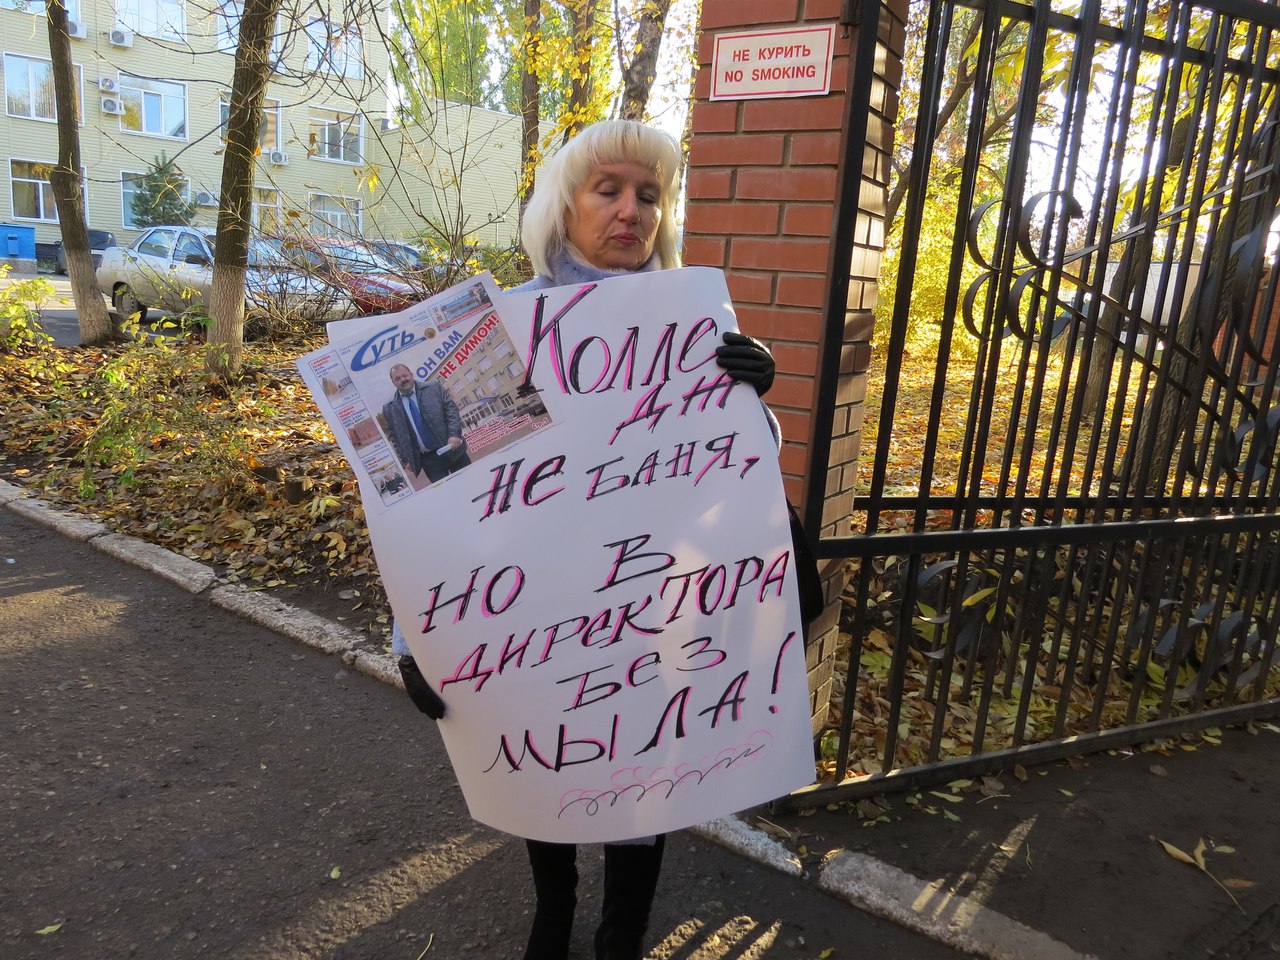 НЕ КУРИТЬ
NO SMOKING
Суть
ОН ВАМ
НЕ ДИМОН!
КОЛЛЕ
ДЖ
НЕ БАНЯ,
НО В
ДИРЕКТОРА
БЕЗ
МЫЛА!